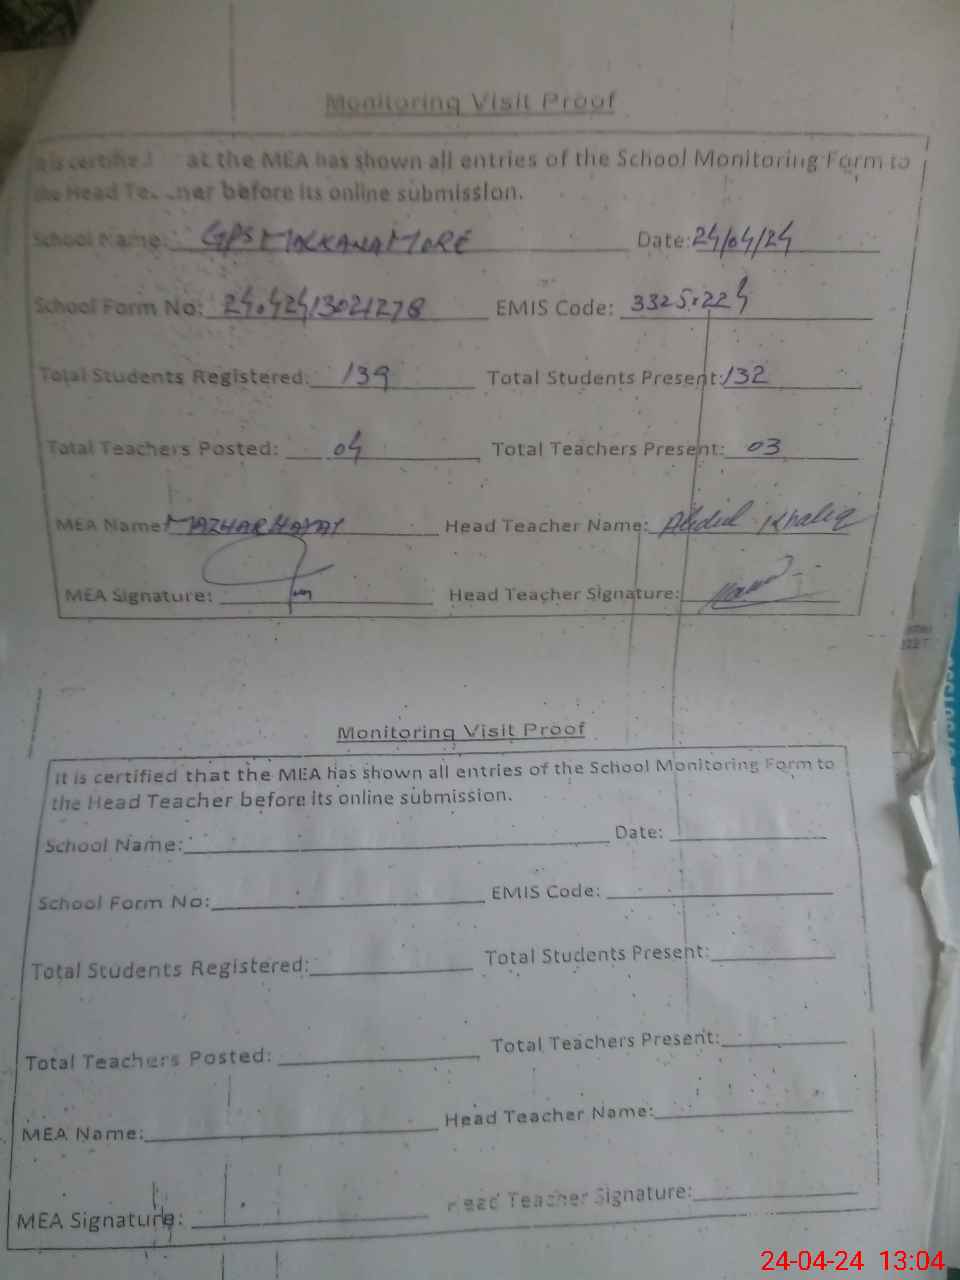 Monitoring Visit Proof
is certified at the MEA has shown all entries of the School Monitoring Form to
the Head Te..ner before its online submission.
School Name: GPS MAKKANA MORE Date: 24/04/24
School Form No: 24042413021278 EMIS Code: 33250224
Total Students Registered: 139 Total Students Present: 132
Total Teachers Posted: 04 Total Teachers Present: 03
MEA Name: MAZHAR HAYAT Head Teacher Name: Abdul Khaliq
MEA Signature: Head Teacher Signature:
Monitoring Visit Proof
It is certified that the MEA has shown all entries of the School Monitoring Form to
the Head Teacher before its online submission.
School Name: Date:
School Form No: EMIS Code:
Total Students Registered: Total Students Present:
Total Teachers Posted: Total Teachers Present:
MEA Name: Head Teacher Name:
MEA Signature: Head Teacher Signature:
24-04-24 13:04